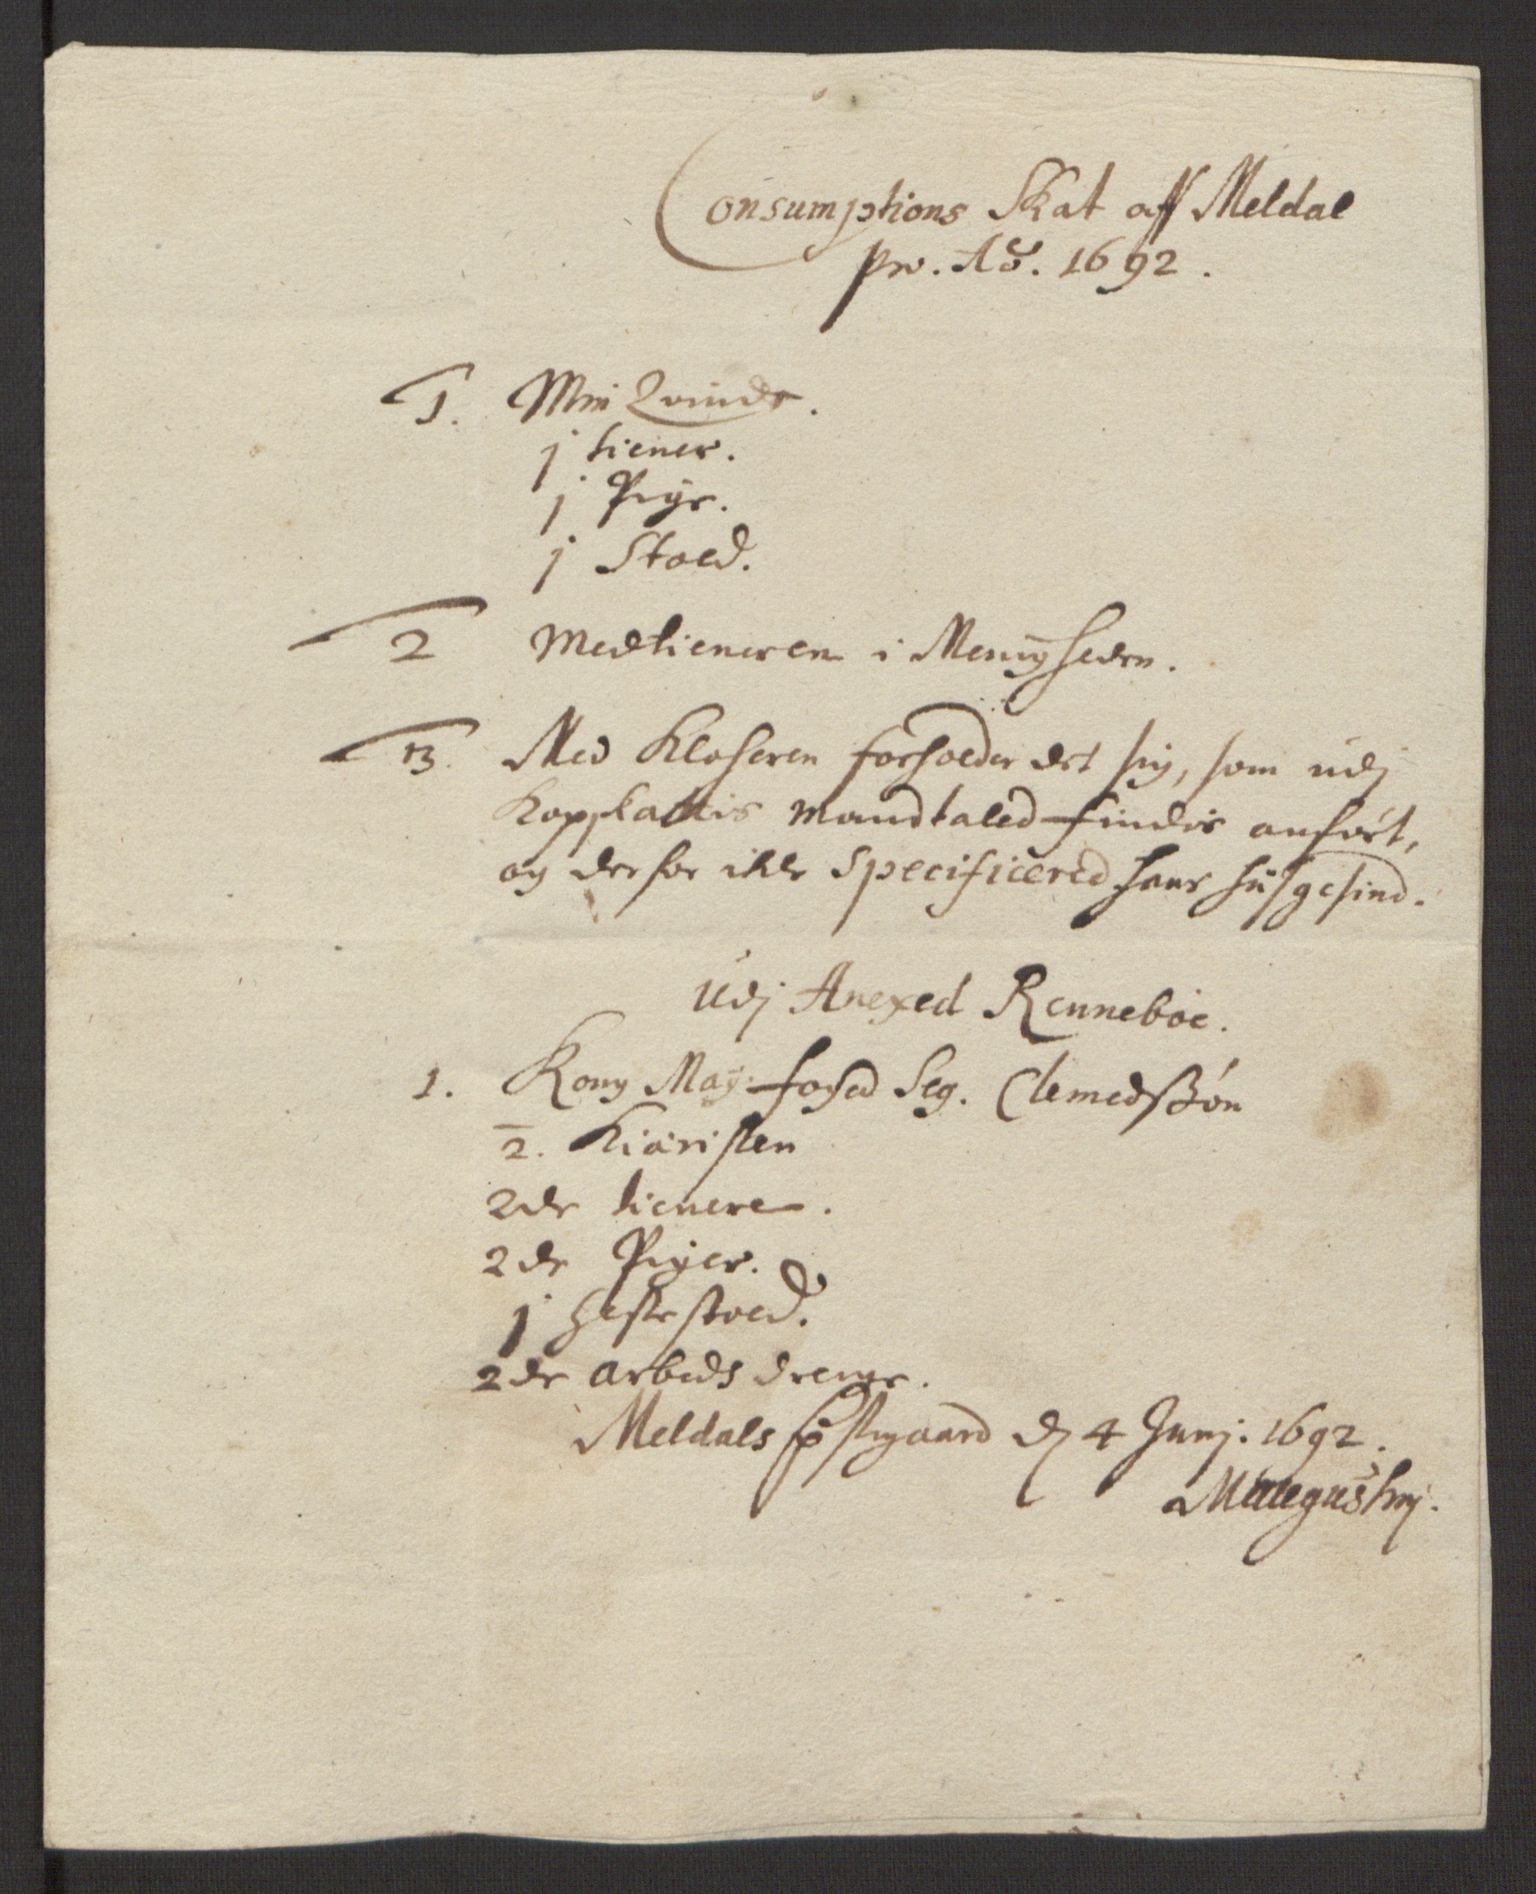 Consumptions Skat aff Meldal
pro. Ao. 1692.
1. Min Qvinde.
j tiener.
j Pige.
j Stoed.
2 Medtieneren i Menigheden.
3. Med Klocheren forholder det sig, som udj
Kopskattis Mandtaled findis anført,
og derfor icke specificered hans hußgesind.
Udj Anexed Renneboe.
1. Kong May: foged Seg. Clemedßøn
2. Kiæristen
2de tienere.
2de Piger.
j Hestestoed.
2de arbeds drenge.
Meldals Prestegaard d 4 Junj. 1692.